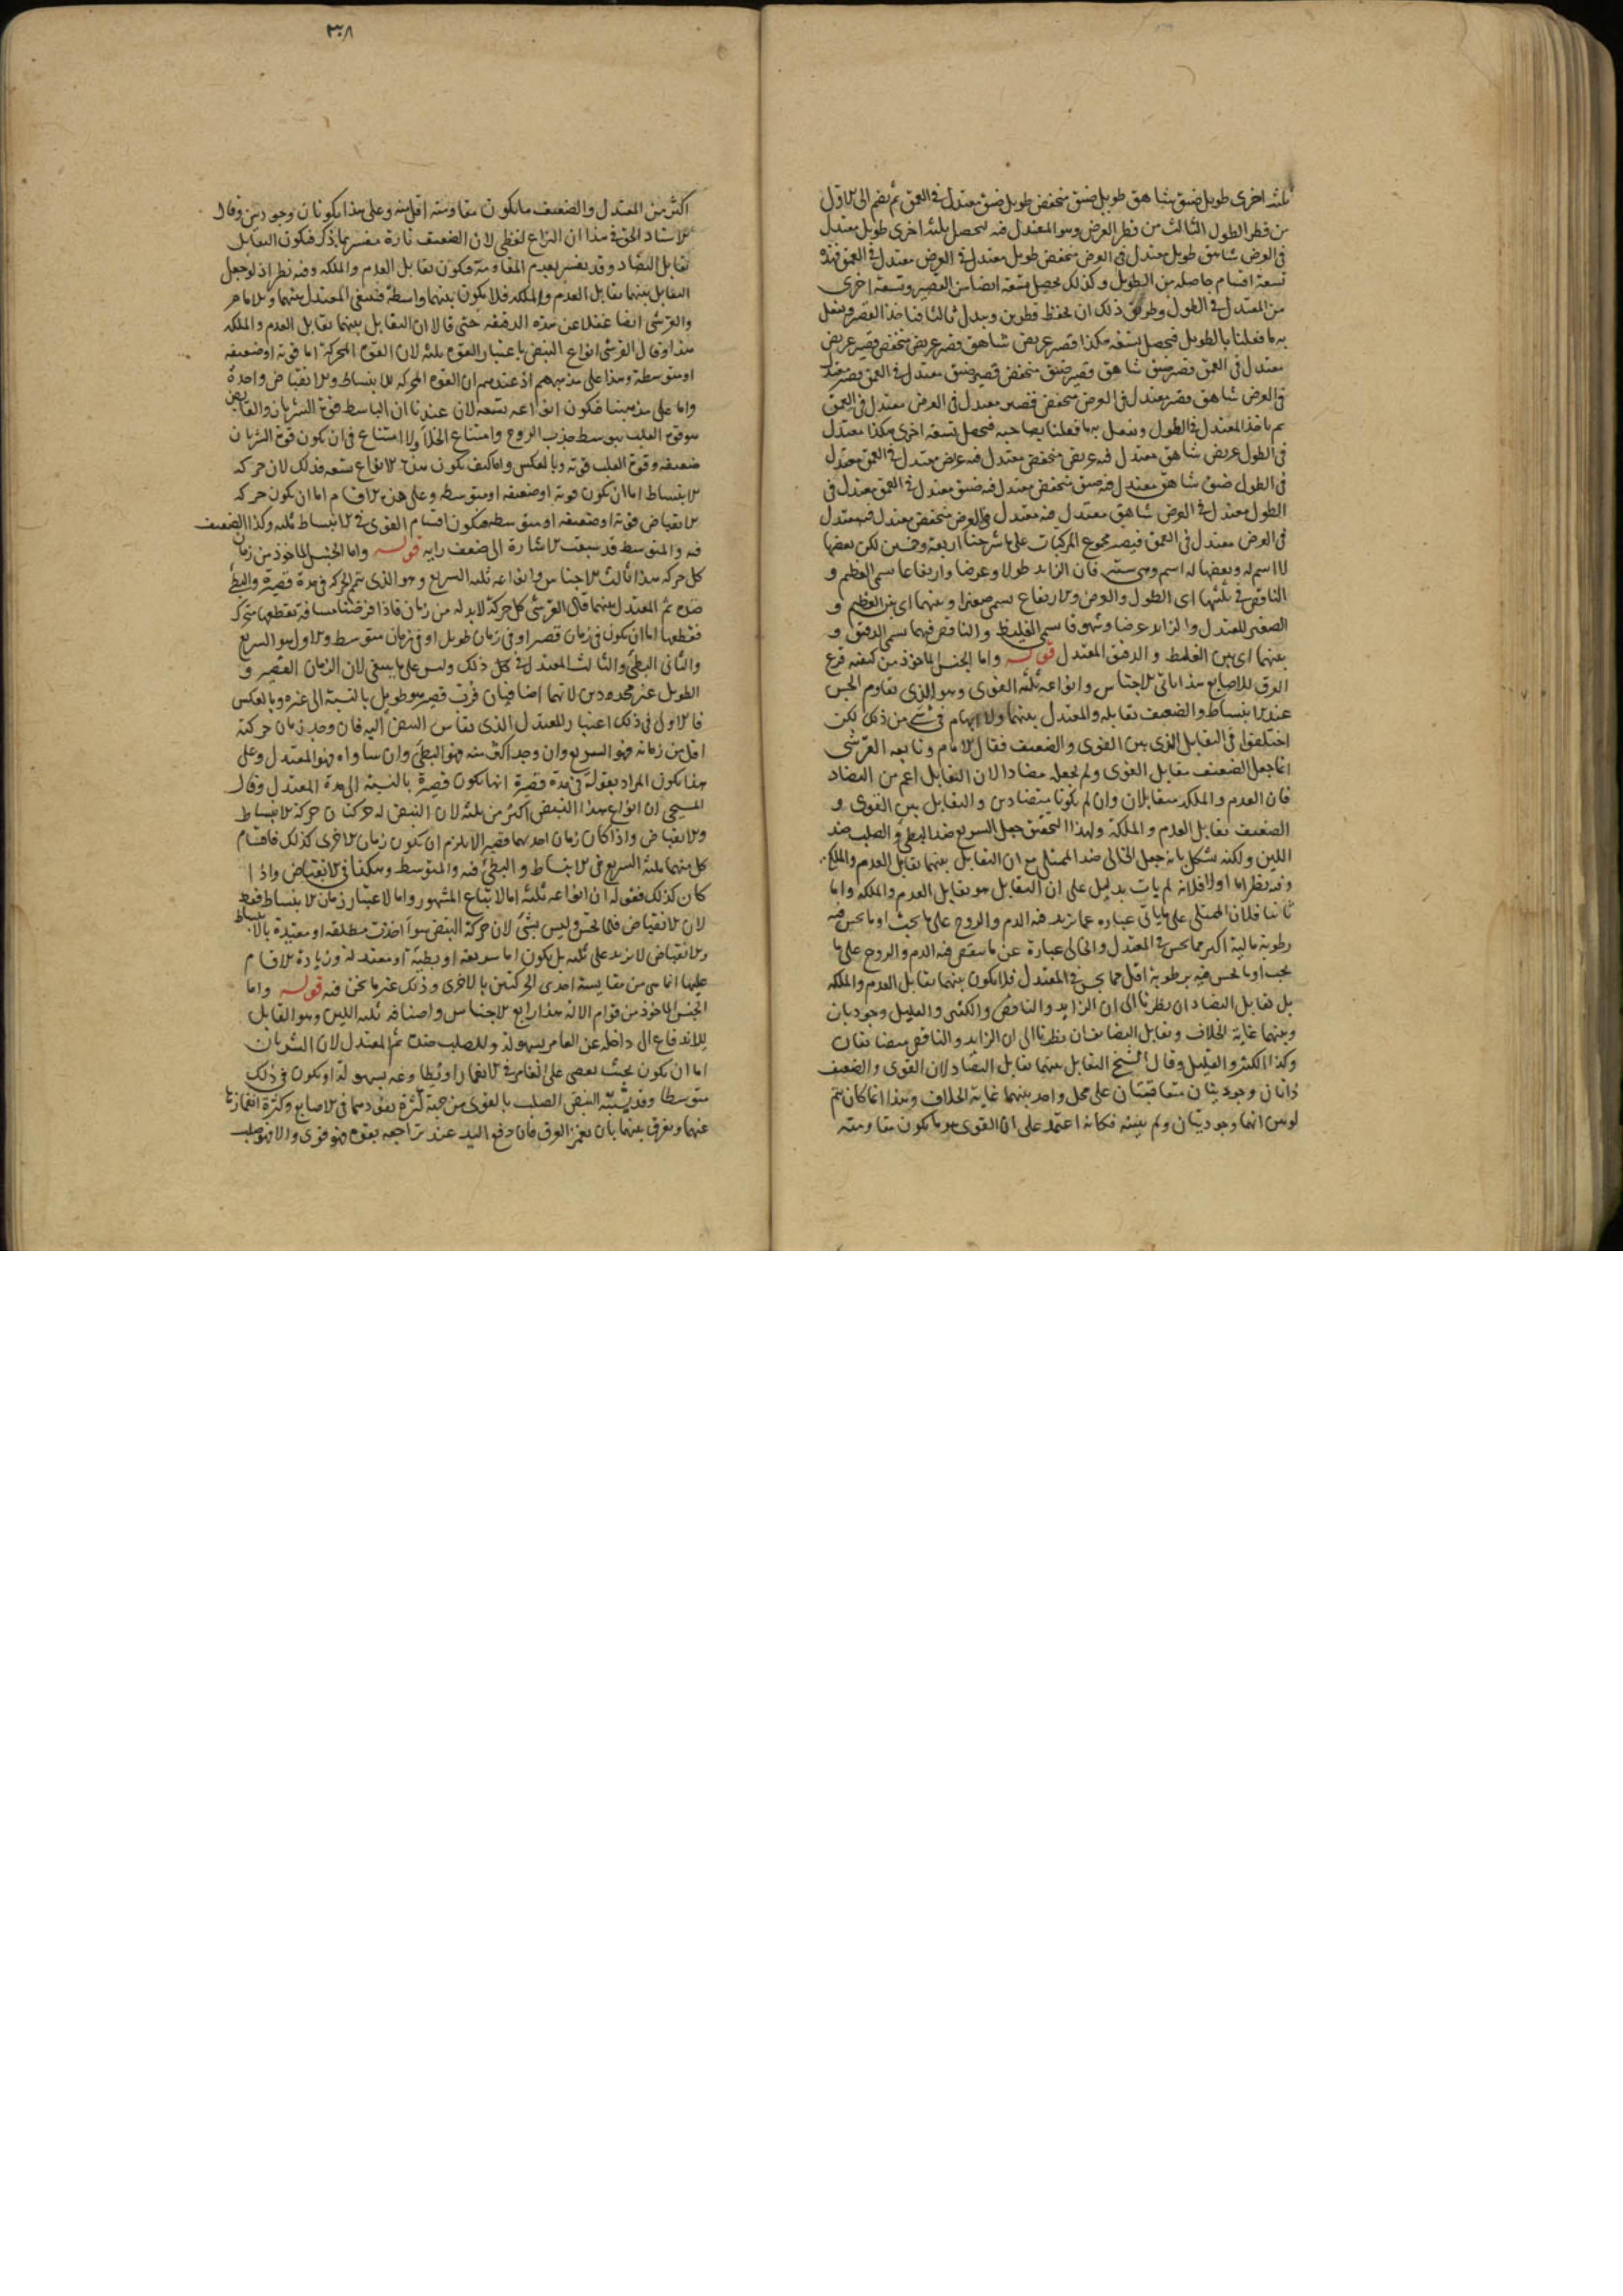 ثلثه اخرى طويل ضيق شاهق طويل ضيق منخفض طويل ضيق معتدل في العمق ثم نضم الى الاول
من قطر الطول الثالث من قطر العرض وهو المعتدل فيه ليحصل ثلثه اخرى طويل معتدل
في العرض شاهق طويل معتدل في العرض منخفض طويل معتدل في العرض معتدل في العمق فهذه
تسعة اقسام حاصله من الطويل وكذلك يحصل تسعه ايضا من القصير وتسعة اخرى
من المعتدل في الطول وطريق ذلك ان تحفظ قطرين وتبدل ثالثا فناخذ القصير ونفعل
به ما فعلنا بالطويل فيحصل تسعه هكذا قصير عريض شاهق قصير عريض منخفض قصير عريض
معتدل في العمق قصير ضيق شاهق قصير ضيق منخفض قصير ضيق معتدل في العمق قصير معتدل
في العرض شاهق قصير معتدل في العرض منخفض قصير معتدل في العرض معتدل في العمق
ثم ناخذ المعتدل في الطول ونفعل به ما فعلنا بصاحبه فيحصل تسعة اخرى هكذا معتدل
في الطول عريض شاهق معتدل فيه عريض منخفض معتدل فيه عريض معتدل في العمق معتدل
في الطول ضيق شاهق معتدل فيه ضيق منخفض معتدل فيه ضيق معتدل في العمق معتدل في
الطول معتدل في العرض شاهق معتدل فيه معتدل في العرض منخفض معتدل فيه معتدل
في العرض معتدل في العمق فيصير مجموع المركبات على ما شرحنا اربعة وخمسين لكن بعضها
لا اسم له وبعضها له اسم وهي ستة فان الزايد طولا وعرضا وارتفاعا يسمى العظيم و
الناقص في ثلثتها اى الطول والعرض والارتفاع يسمى صغيرا وبينهما اى بين العظيم و
الصغير المعتدل والزايد عرضا وشهوقا يسمى الغليظ والناقص فيهما يسمى الدقيق و
بينهما اى بين الغليظ والدقيق المعتدل قوله واما الجنس الماخوذ من كيفيه قرع
العرق للاصابع هذا ثاني الاجناس وانواعه ثلثه القوى وهو الذى يقاوم الجس
عند الانبساط والضعيف يقابله والمعتدل بينهما ولا ابهام في شئ من ذلك لكن
اختلفوا في التقابل الذى بين القوى والضعيف فقال الامام وتابعه القرشى
انما جعل الضعيف مقابل القوى ولم يجعله مضادا لان التقابل اعم من التضاد
فان العدم والملكه متقابلان وان لم يكونا متضادين والتقابل بين القوى و
الضعيف تقابل العدم والملكة ولهذا التحقيق جعل السريع ضد البطئ والصلب ضد
اللين ولكنه يشكل بانه جعل الخالى ضد الممتلى مع ان التقابل بينهما تقابل العدم والملكه
وفيه نظر اما اولا فلانه لم يات بدليل على ان التقابل هو تقابل العدم والملكه واما
ثانيا فلان الممتلى على ما ياتى عبارة عما يزيد فيه الدم والروح على ما يجب او ما يحس فيه
رطوبة مالية اكثر مما يحس في المعتدل والخالى عبارة عن ما ينقص فيه الدم والروح على ما
يجب او ما يحس فيه برطوبة اقل مما يحس في المعتدل فلا يكون بينهما تقابل العدم والملكه
بل تقابل التضاد ان نظرنا الى ان الزايد والناقص والكثير والقليل وجوديان
وبينهما غاية الخلاف وتقابل التضايف ان نظرنا الى ان الزايد والناقص متضايفان
وكذا الكثير والقليل وقال الشيخ التقابل بينهما تقابل التضاد لان القوى والضعيف
ذاتان وجوديتان متعاقبتان على محل واحد بينهما غاية الخلاف وهذا انما كان يتم
لو بين انهما وجوديتان ولم يبينه فكانه اعتمد على ان القوى هو ما يكون مقاومته
٣٠٨
اكثر من المعتدل والضعيف ما يكون مقاومته اقل منه وعلى هذا يكونان وجوديين وقال
الاستاد الحق في هذا ان النزاع لفظى لان الضعيف تارة يفسر بما ذكر فيكون التقابل
تقابل التضاد وقد يفسر بعدم المقاومة فيكون تقابل العدم والملكه وفيه نظر اذ لو جعل
التقابل بينهما تقابل العدم والملكه فلا يكون بينهما واسطة فينبغى المعتدل بينهما والامام
والقرشى ايضا غفلا عن هذه الدقيقه حتى قالا ان التقابل بينهما تقابل العدم والملكه
هذا وقال القرشى انواع النبض باعتبار القوة ثلثه لان القوة المحركة اما قوية او ضعيفه
او متوسطة وهذا على مذهبهم اذ عندهم ان القوة المحركه للانبساط والانقباض واحدة
واما على مذهبنا فيكون انواعه تسعه لان عندنا ان الباسط قوة الشريان والقابض
هو قوة القلب بتوسط جذب الروح وامتناع الخلاء ولا امتناع في ان يكون قوة الشريان
ضعيفه وقوة القلب قويه وبالعكس واما كيف يكون هذه الانواع تسعه فذلك لان حركه
الانبساط اما ان تكون قويه او ضعيفه او متوسطه وعلى هذه الاقسام اما ان يكون حركه
الانقباض قوية او ضعيفه او متوسطه فيكون اقسام القوى في الانبساط ثلثه وكذا الضعيف
فيه والمتوسط قد سبقت الاشارة الى ضعف رايه قوله واما الجنس الماخوذ من زمان
كل حركه هذا ثالث الاجناس وانواعه ثلثه السريع وهو الذى يتم الحركه في مدة قصيرة والبطئ
ضده ثم المعتدل بينهما قال القرشى كل حركة لابد له من زمان فاذا فرضنا مسافة تقطعها متحرك
فقطعها اما ان يكون في زمان قصير او في زمان طويل او في زمان متوسط والاول هو السريع
والثانى البطئ والثالث المعتدل في كل ذلك وليس على ما ينبغى لان الزمان القصير و
الطويل غير محدودين لانهما اضافيان فرب قصير هو طويل بالنسبة الى غيره وبالعكس
فالاولى في ذلك اعتبار المعتدل الذى يقاس النبض اليه فان وجد زمان حركته
اقل من زمانه فهو السريع وان وجد اكثر منه فهو البطئ وان ساواه فهو المعتدل وعلى
هذا يكون المراد بقوله في مدة قصيرة انها يكون قصيرة بالنسبة الى مدة المعتدل وقال
المسيحى ان انواع هذا النبض اكثر من ثلثه لان النبض له حركتان حركة الانبساط
والانقباض واذا كان زمان احديهما قصيرا لا يلزم ان يكون زمان الاخرى كذلك فاقسام
كل منهما ثلثه السريع في الانبساط والبطئ فيه والمتوسط وهكذا في الانقباض واذا
كان كذلك فقوله ان انواعه ثلثه اما لاتباع المشهور واما لاعتبار زمان الانبساط فقط
لان الانقباض قلما يحس وليس بشئ لان حركة النبض سواء اخذت مطلقه او مقيدة بالانبساط
والانقباض لا يزيد على ثلثه بل يكون اما سريعة او بطيئة او معتدلة وزيادة الاقسام
عليها انما هى من مقايسة احدى الحركتين بالاخرى وذلك غير ما نحن فيه قوله واما
الجنس الماخوذ من قوام الالة هذا رابع الاجناس واصنافه ثلثه اللين وهو القابل
للاندفاع الى داخله عن الغامز بسهولة والصلب ضده ثم المعتدل لان الشريان
اما ان يكون بحيث يعصى على الغامز في الانغمار او يطاوعه بسهولة او يكون في ذلك
متوسطا وقد يشتبه النبض الصلب بالقوى من جهة كثرة نفودهما في الاصابع وكثرة انغمازها
عنهما ويفرق بينهما بان يغمز العرق فان دفع اليد عند تراجعه بقوه فهو قوى والا فهو صلب